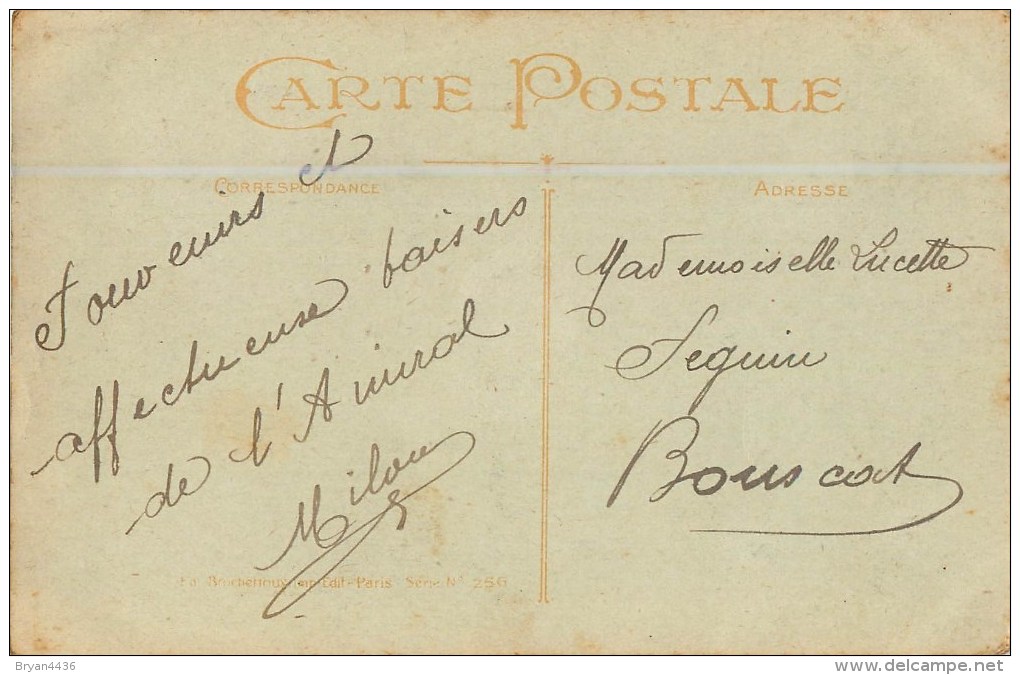 CARTE POSTALE
CORRESPONDANCE
ADRESSE
Souvenirs et
affectueuse baisers
de l'Amiral
Milou
Mademoiselle Lucette
Seguin
Bouscat
Imp. Edit-Paris Série No 256
Bryan4436
www.delcampe.net